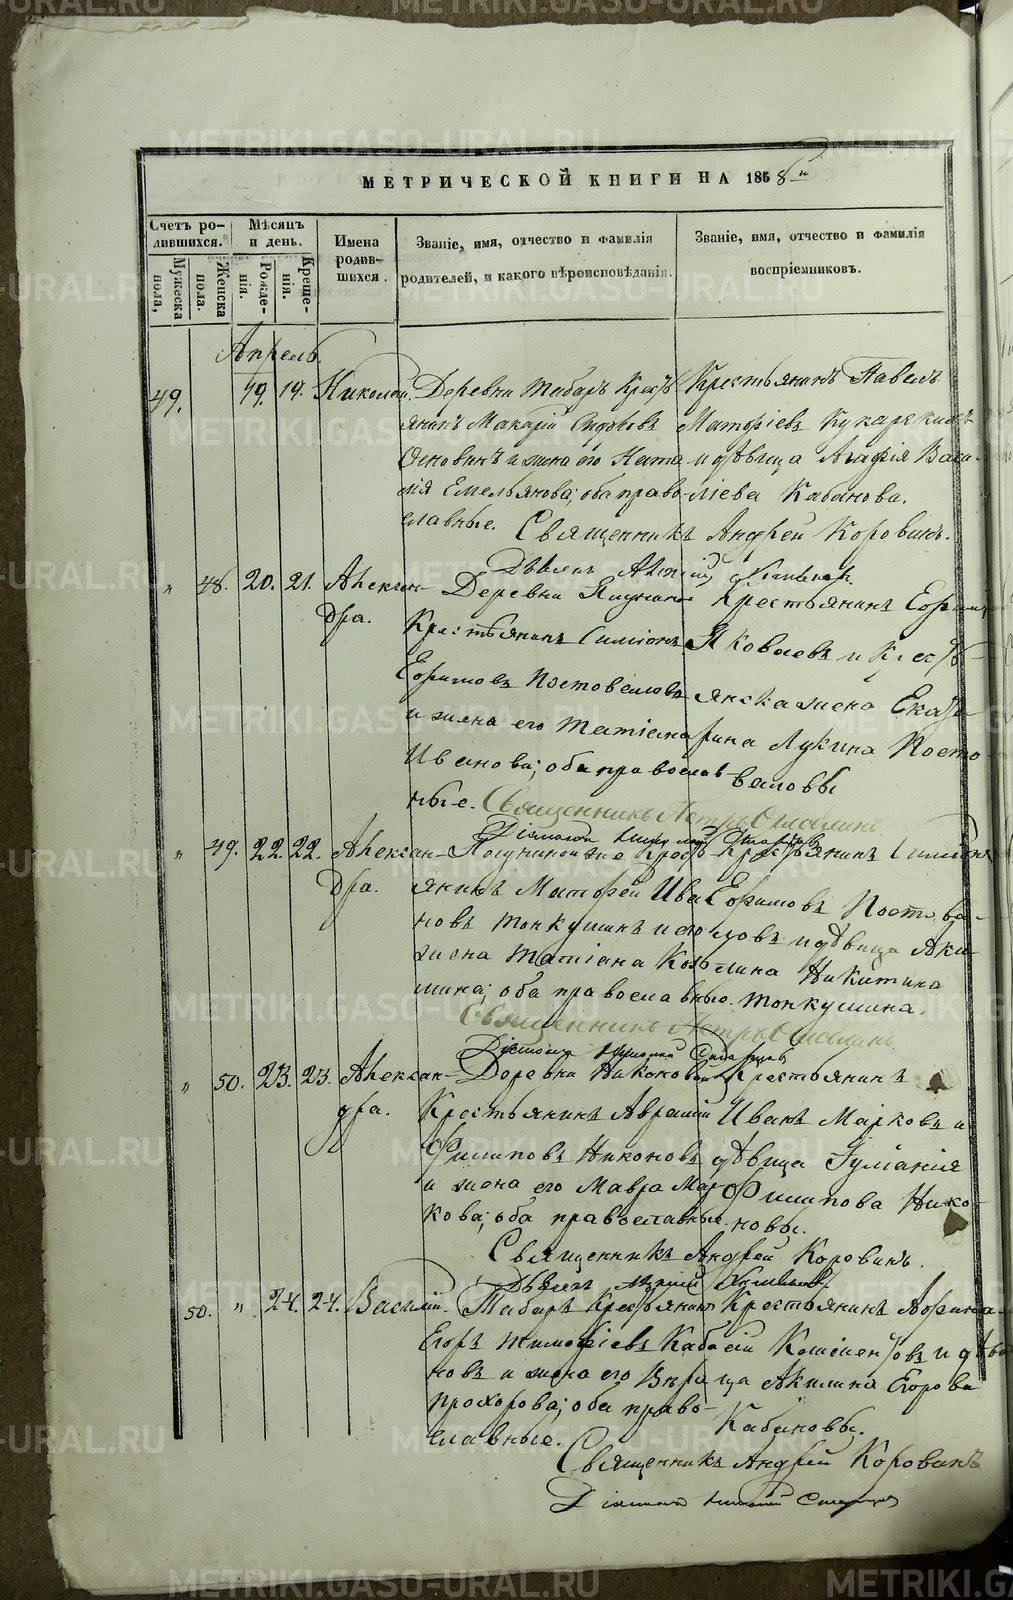 МЕТРИЧЕСКОЙ КНИГИ НА 1858й
Счетъ ро-
дившихся.
Мужеска
пола,
Женска
пола.
Мѣсяцъ
и день.
Рожде-
нія.
Креще-
нія.
Имена
родив-
шихся.
Званіе, имя, отчество и фамилія
родителей, и какого вѣроисповѣданія.
Званіе, имя, отчество и фамилія
воспріемниковъ.
Апрель.
49. 19. 19. Николай.
Деревни Табаръ Кресть
янинъ Макарій
и жена его Ната
лія Емельянова; оба право
славные.
Крестьянинъ Павелъ
Матѳіевъ
и дѣвица Агафія Васи
ліева Кабанова.
Священникъ Андрей Коровинъ.
" 48. 20. 21. Алексан-
дра.
Деревни
Крестьянинъ Симіонъ
Ефимовъ Постоваловъ
и жена его Татіана
Иванова; оба православ
ные.
Крестьянинъ Ефимъ
Яковлевъ и Кресть-
янска жена Екате
рина Лукина Посто
валовы
Священникъ Петръ
" 49. 22. 22. Алексан-
дра.
Крестьянинъ Матфей Ива
новъ Топкушинъ и его
жена Татіана Козь
мина; оба православные.
Крестьянинъ Симіонъ
Ефимовъ Постова-
ловъ и дѣвица Аки-
лина Никитина
Топкушина.
Священникъ Петръ
" 50. 23. 23. Алексан-
дра.
Деревни Никоновой
Крестьянинъ Аврамій
Филиповъ Никоновъ
и жена его Мавра Мар
кова; оба православные.
Крестьянинъ
Иванъ Марковъ и
дѣвица Іуліанія
Филипова Нико-
новы.
Священникъ Андрей Коровинъ.
50. " 24. 24. Василій.
Табаръ Крестьянинъ
Егоръ Тимофіевъ Каба
новъ и жена его Вѣра
Прохорова; оба право-
славные.
Крестьянинъ
и дѣви
ца Акилина Егорова
Кабановы.
Священникъ Андрей Коровинъ
METRIKI.GASO-URAL.RU